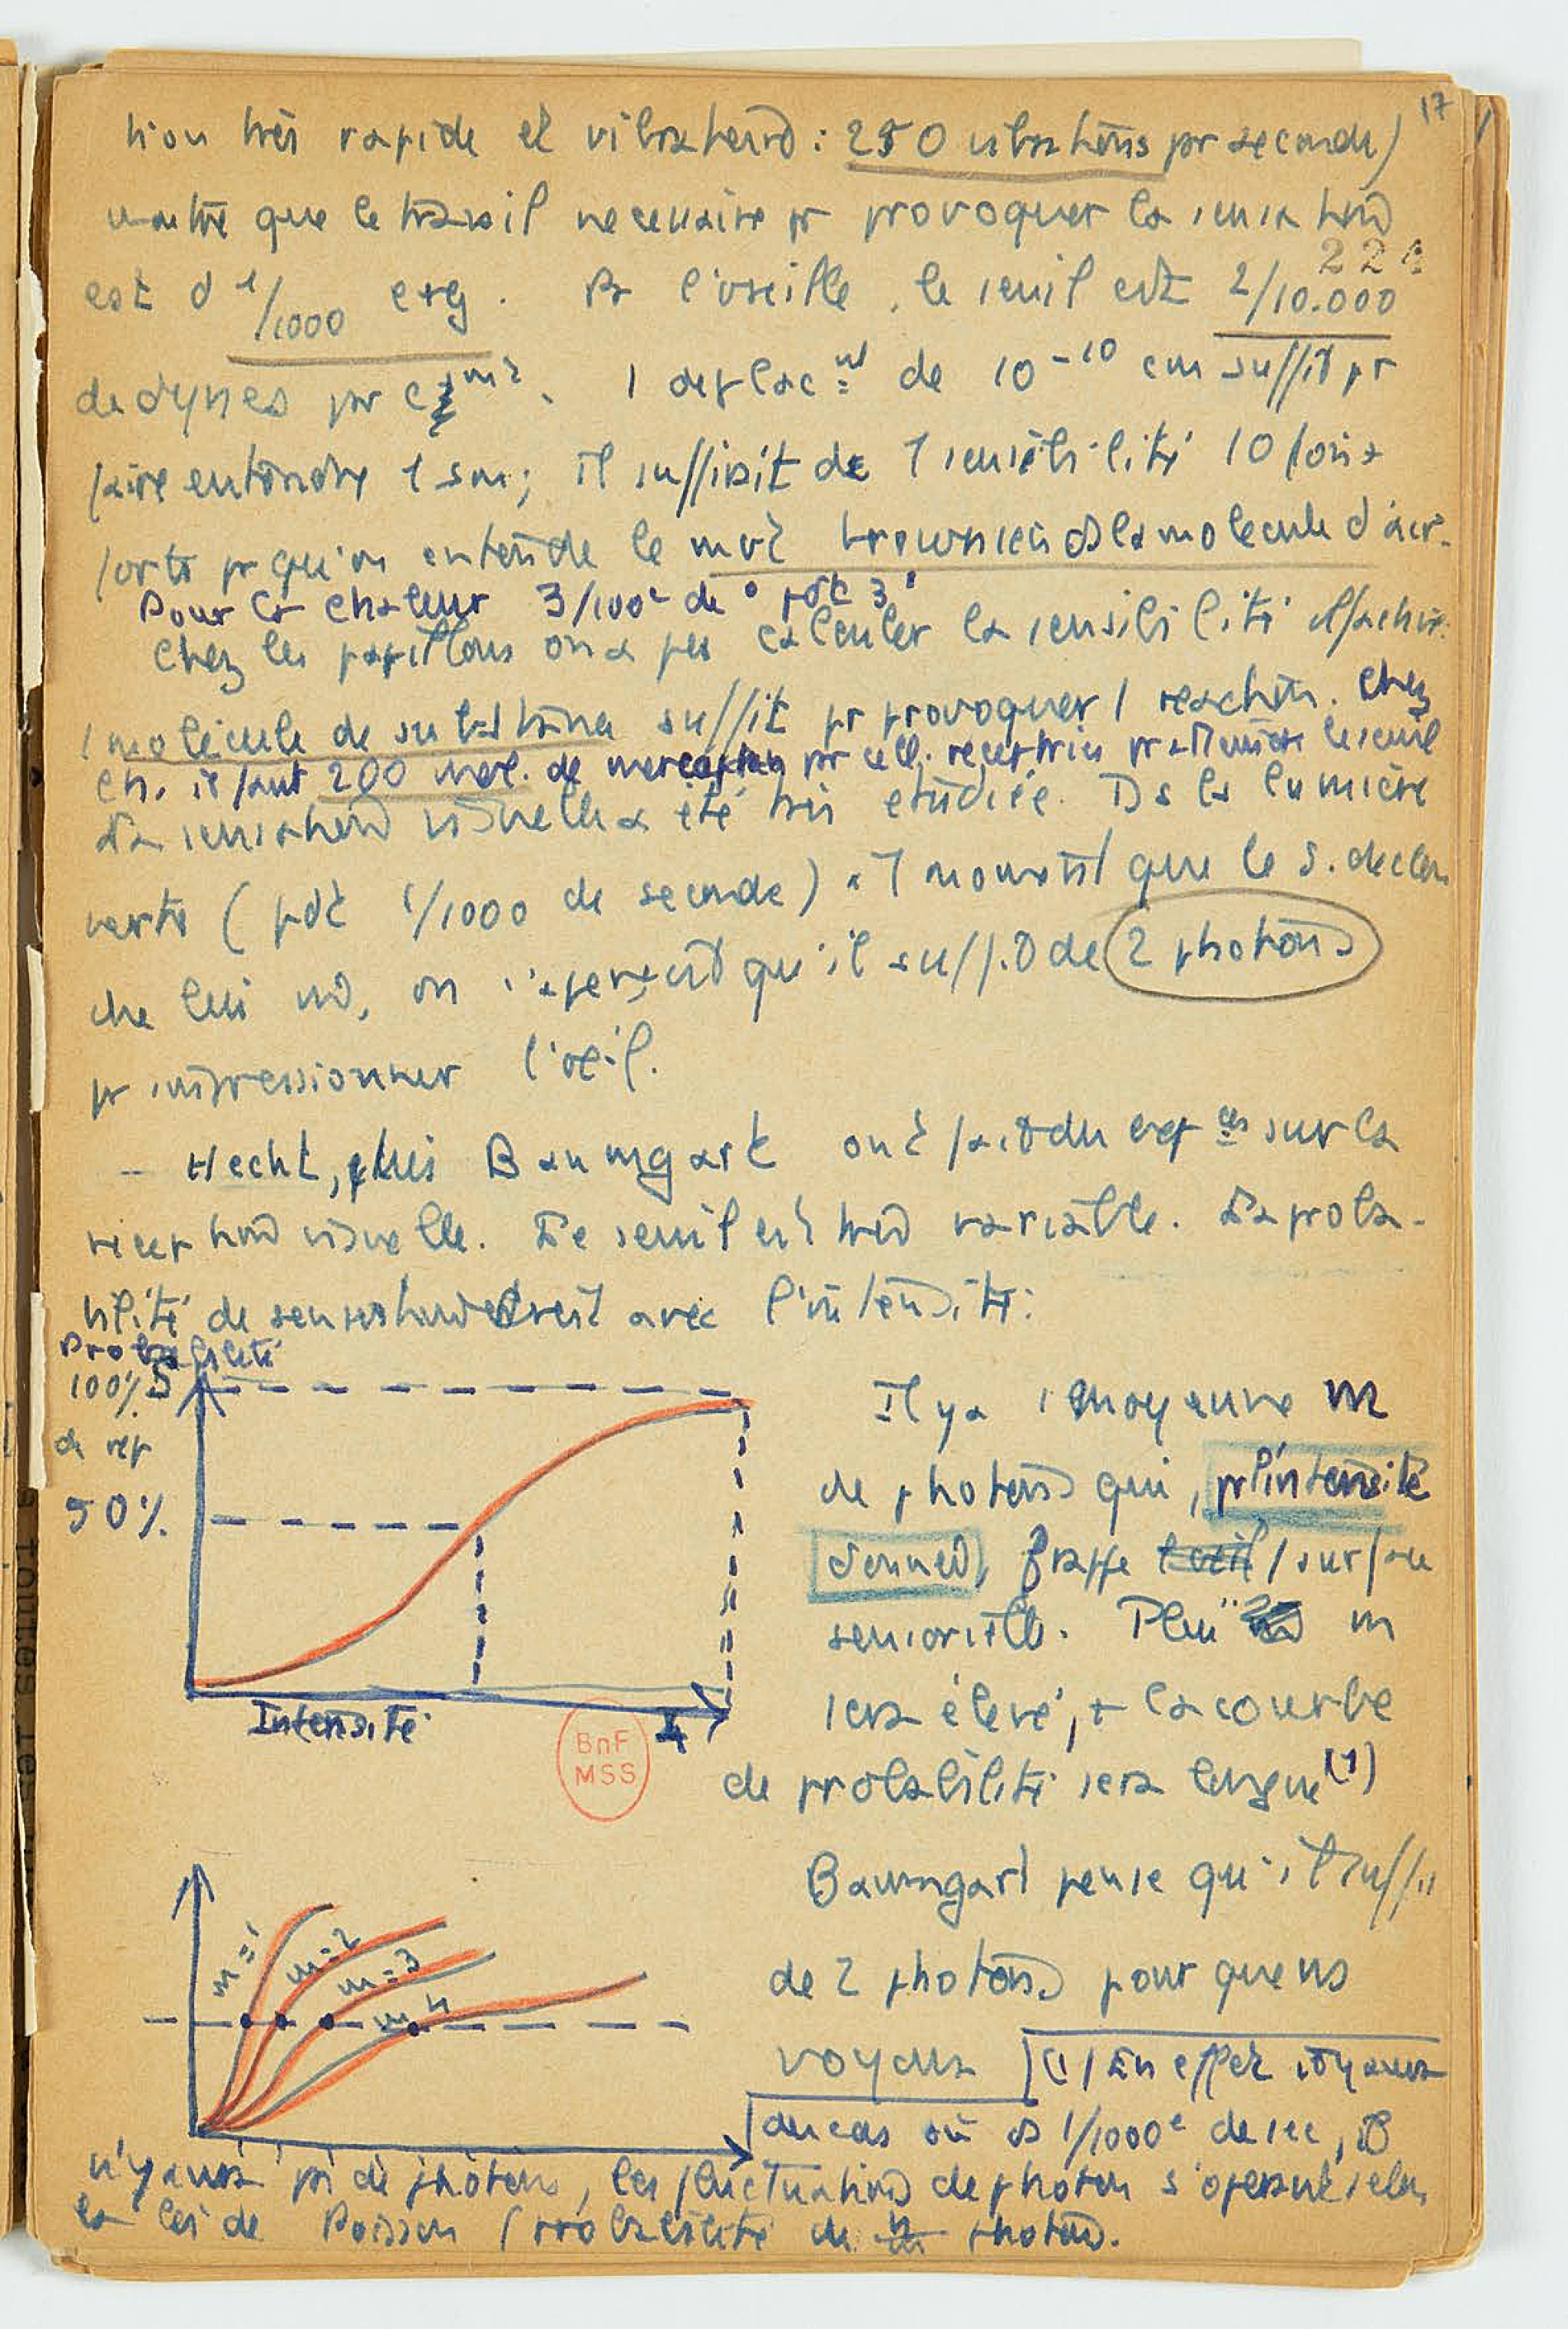 17
tion très rapide et vibration : 250 vibrations pr seconde)
montre que le travail necessaire pr provoquer la sensation
221
est d 1/1000 erg. Pr l'oreille, le seuil est 2/10.000
de dynes par cm2. 1 deplact de 10-10 cm suffit pr
faire entendre 1 son; il suffirait de 1 sensibilité 10 fois +
forte pr qu'on entende le mvt brownien ds la molecule d'air.
Pour la chaleur 3/100e de ° pdt 3"
Chez les papillons on a pu calculer la sensibilité olfactive:
1 molécule de substance suffit pr provoquer 1 reaction. Chez
ch. il faut 200 mol. de mercaptan pr cell. receptrice pr atteindre le seuil
La sensation visuelle a été très etudiée. Ds la lumière
verte (pdt 1/1000 de seconde) au moment que le S. declen
che lui, on s'aperçoit qu'il suffit de 2 photons
pr impressionner l'oeil.
- Hecht, puis Baumgart ont fait du expces sur la
reception visuelle. Le seuil est très variable. La proba-
bilité de sensation croit avec l'intensité:
Probabilité
100% S
de rep
50%
Intensité
I
BnF
MSS
Il y a 1 moyenne m
de photons qui, pr l'intensité
donnée, frappe l'oeil 1 surface
sensorielle. Plus m
sera élevé, + la courbe
de probabilité sera longue (1)
Baumgart pense qu'il suffit
de 2 photons pour que ns
voyons
m=1
m=2
m=3
m=4
(1) En effet voyons
du cas où ds 1/1000e de sec, il
n'y aura pr de photons, les fluctuations de photon s'operent selon
la loi de Poisson (probabilité de n photons.